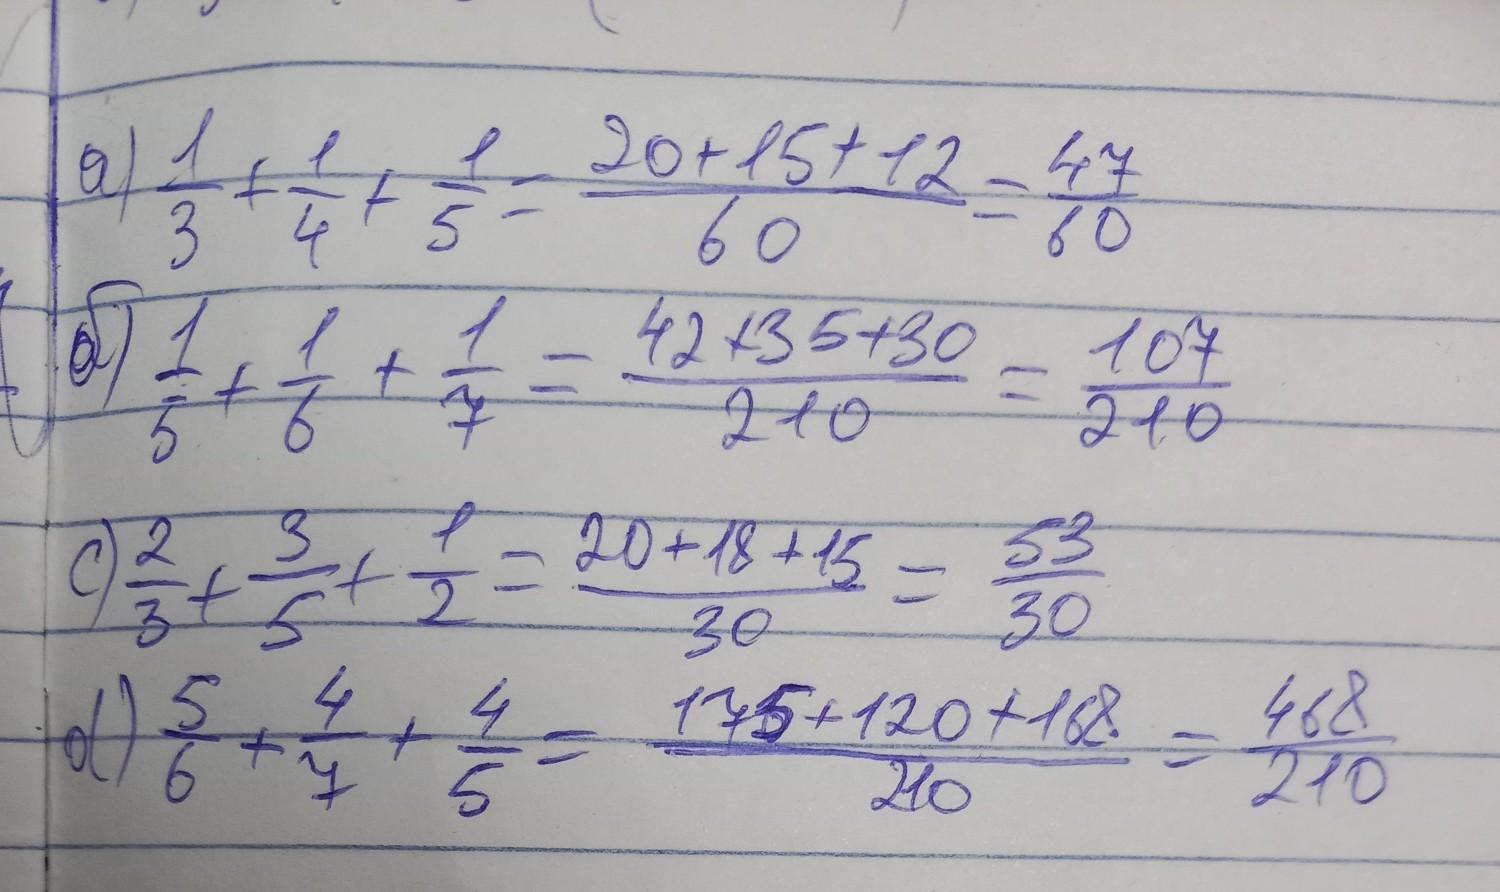 a) 1/3 + 1/4 + 1/5 = (20+15+12)/60 = 47/60
б) 1/5 + 1/6 + 1/7 = (42+35+30)/210 = 107/210
c) 2/3 + 3/5 + 1/2 = (20+18+15)/30 = 53/30
d) 5/6 + 4/7 + 4/5 = (175+120+168)/210 = 468/210